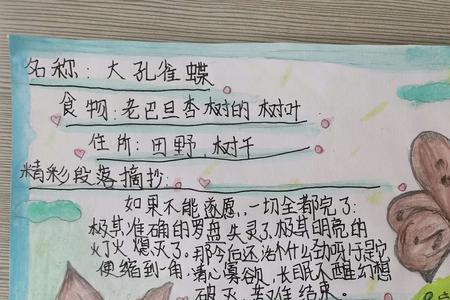 名称：大孔雀蝶
食物：老巴旦杏树的树叶
住所：田野、树干
精彩段落摘抄：
如果不能遂愿，一切全都完了：
极其准确的罗盘失灵了，极其明亮的
灯火熄灭了。那今后还活个什么劲呀！于是它
便缩到一角，清心寡欲，长眠不醒，幻想
破灭，结束。